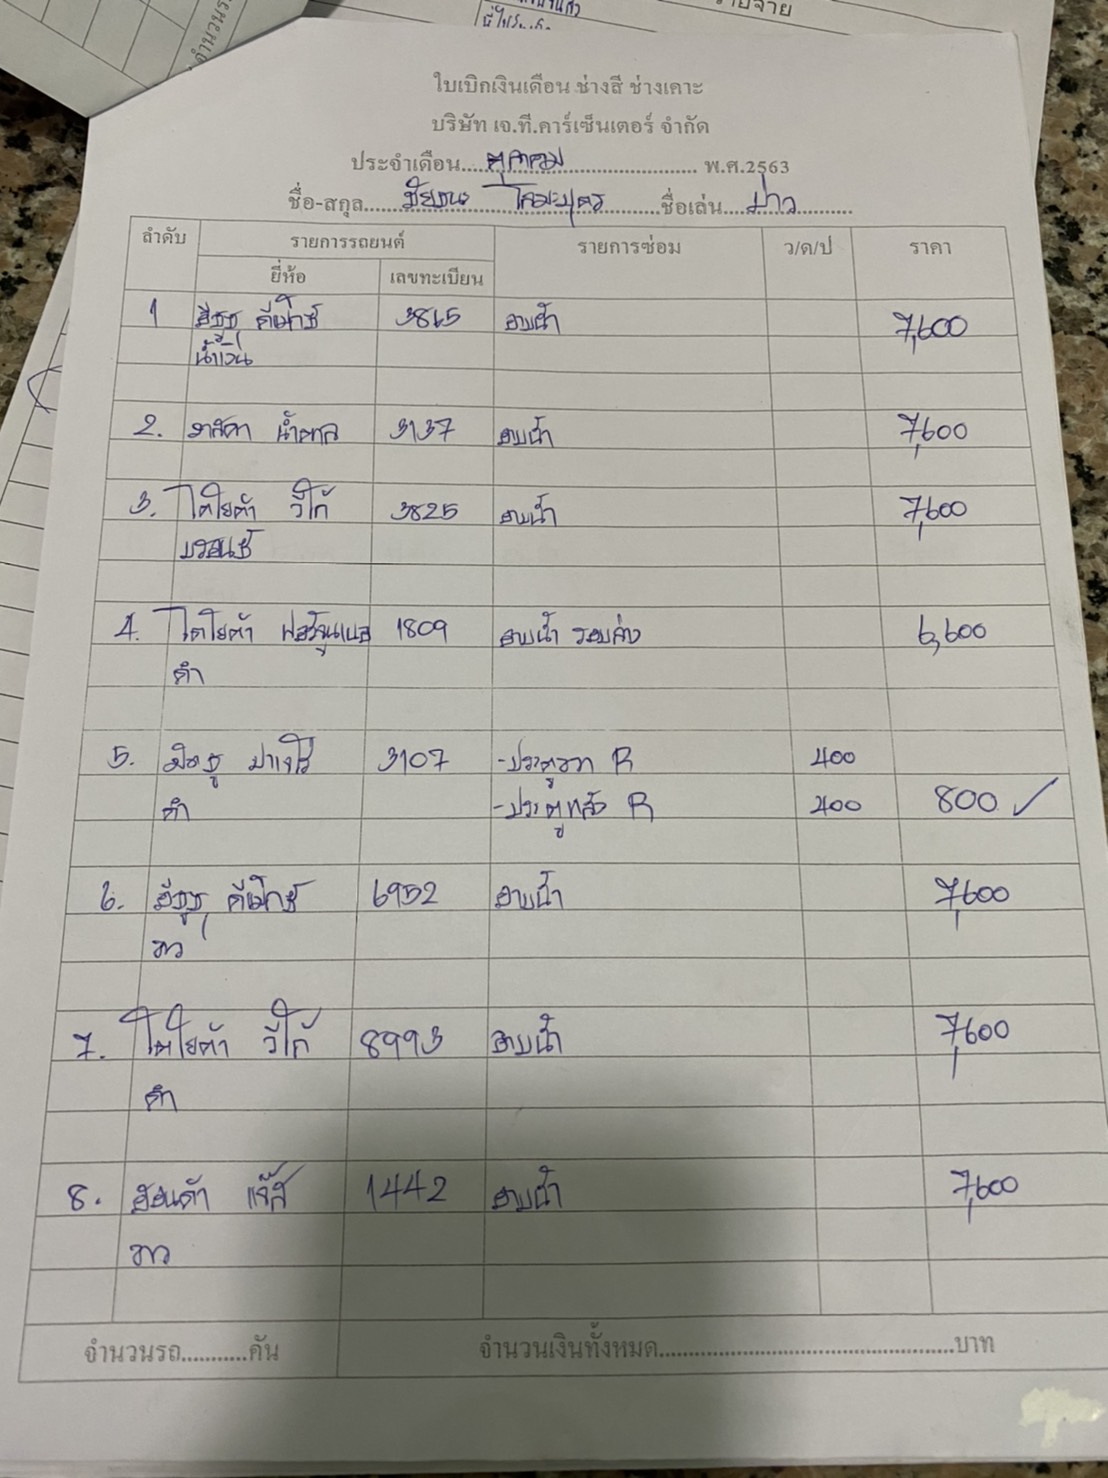 จำนวนร
รายจ่าย
ใบเบิกเงินเดือน ช่างสี ช่างเคาะ
บริษัท เจ.ที.คาร์เซ็นเตอร์ จำกัด
ประจำเดือน....ตุลาคม.................... พ.ศ.2563
ชื่อ-สกุล....ชัยชนะ โคมะบุตร........ชื่อเล่น....บ่าว..........
ลำดับ รายการรถยนต์ รายการซ่อม ว/ด/ป ราคา
ยี่ห้อ เลขทะเบียน
1 อีซูซุ ดีแม็กซ์ 3865 อาบน้ำ 7,600
น้ำเงิน
2. มาสด้า น้ำตาล 3137 อาบน้ำ 7,600
3. โตโยต้า วีโก้ 3825 อาบน้ำ 7,600
บรอนซ์
4. โตโยต้า ฟอร์จูนเนอ 1809 อาบน้ำ รอบคัน 6,600
ดำ
5. มิตซู ปาเจโร่ 3107 -ประตูหน้า R 400
ดำ -ประตูหลัง R 400 800 ✓
6. อีซูซุ ดีแม็กซ์ 6952 อาบน้ำ 7,600
ขาว
7. โตโยต้า วีโก้ 8993 อาบน้ำ 7,600
ดำ
8. ฮอนด้า แจ๊ส 1442 อาบน้ำ 7,600
ขาว
จำนวนรถ...........คัน จำนวนเงินทั้งหมด..................................................บาท